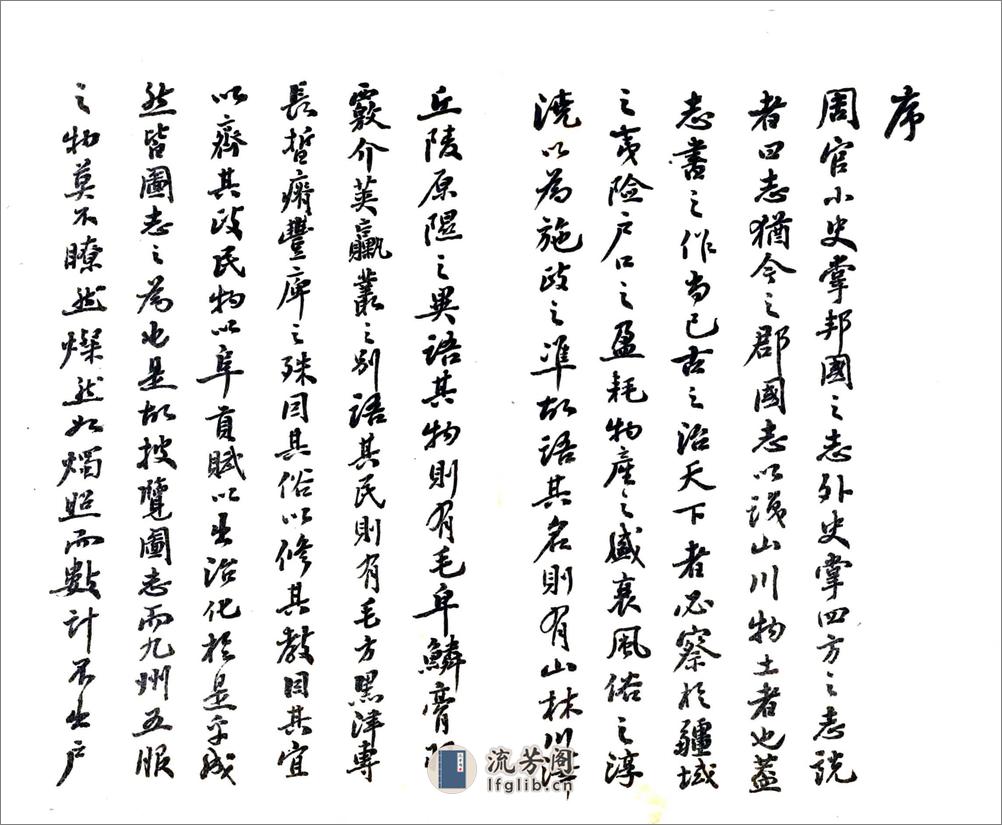 序
周官小史掌邦國之志外史掌四方之志說
者曰志猶今之郡國志以識山川物土者也蓋
志書之作尚已古之治天下者必察於疆域
之夷險戶口之盈耗物產之盛衰風俗之淳
澆以為施政之準故語其名則有山林川澤
丘陵原隰之異語其物則有毛阜鱗膏
覈介莢蠃叢之別語其民則有毛方黑津專
長皙瘠豐庳之殊因其俗以修其教因其宜
以齊其政民物以阜貢賦以出治化於是乎成
然皆圖志之為也是故披覽圖志而九州五服
之物莫不瞭然燦然如燭照而數計不出戶
流芳阁
lfglib.cn